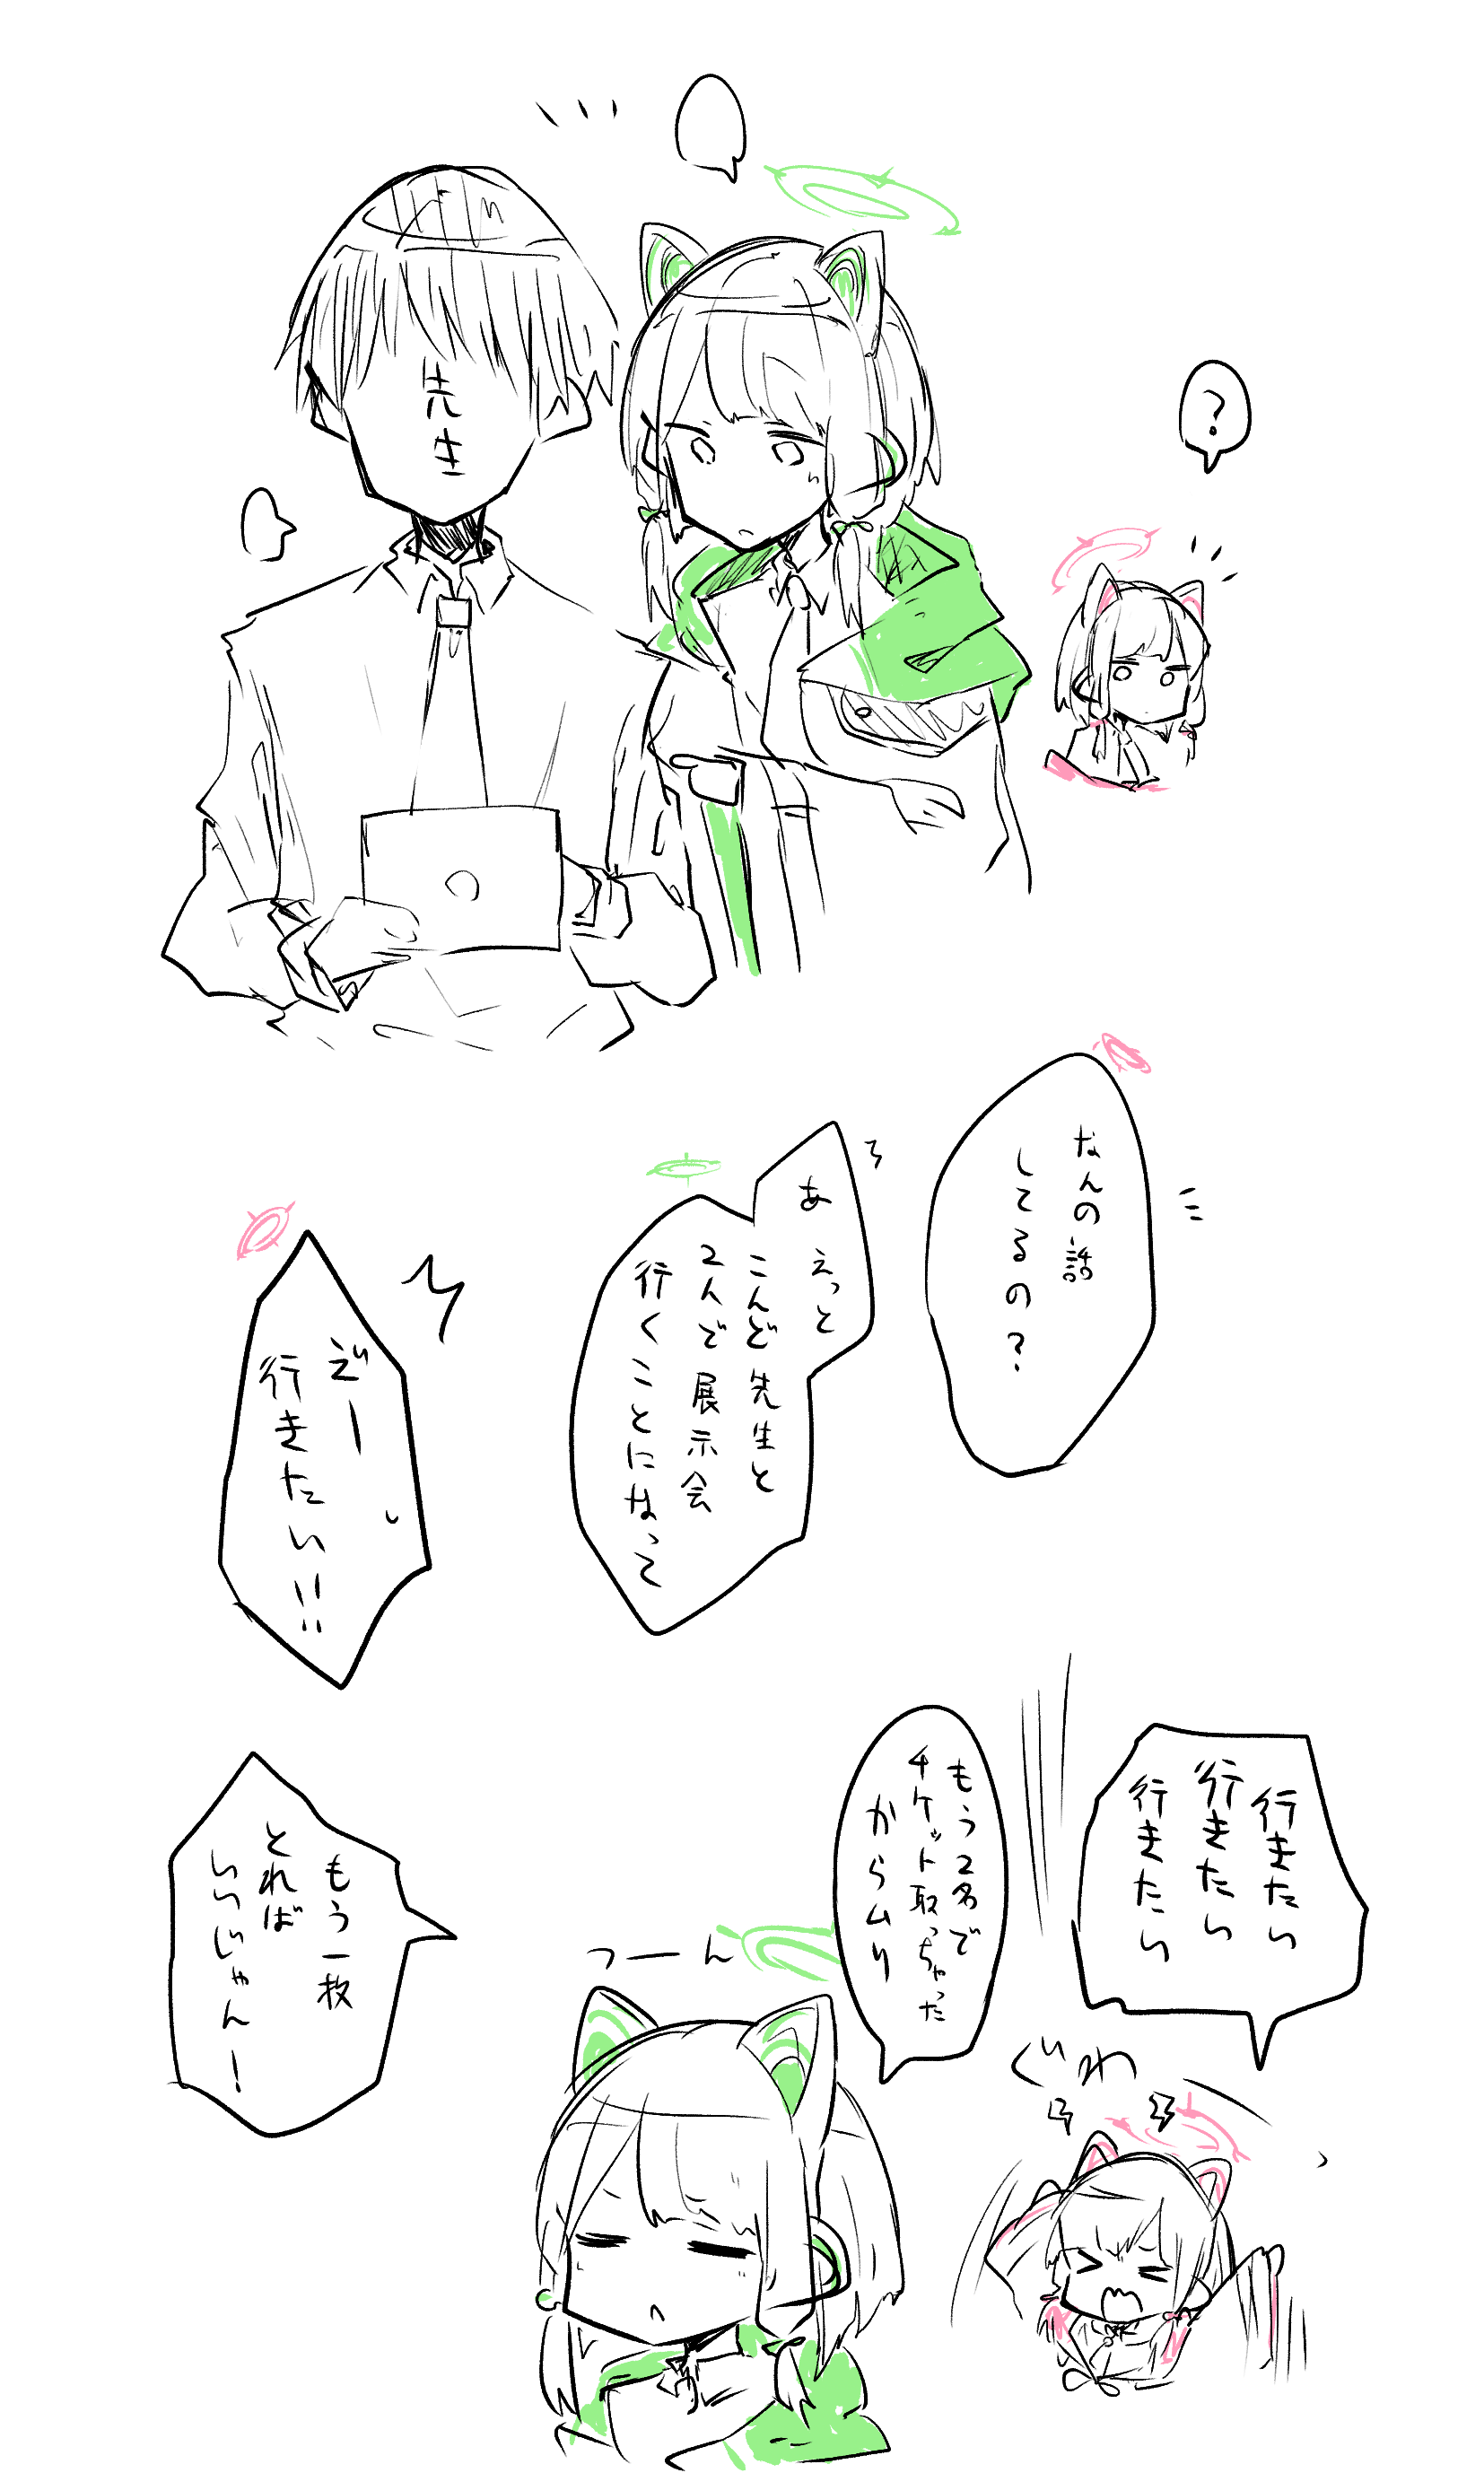 先生
？
なんの話
してるの？
あ えっと
こんど先生と
2人で展示会
行くことになって
えー
行きたい！！
行きたい
行きたい
行きたい
ぐわ
もう2名で
チケット取っちゃった
からムリ
つーん
もう一枚
とれば
いいじゃん！